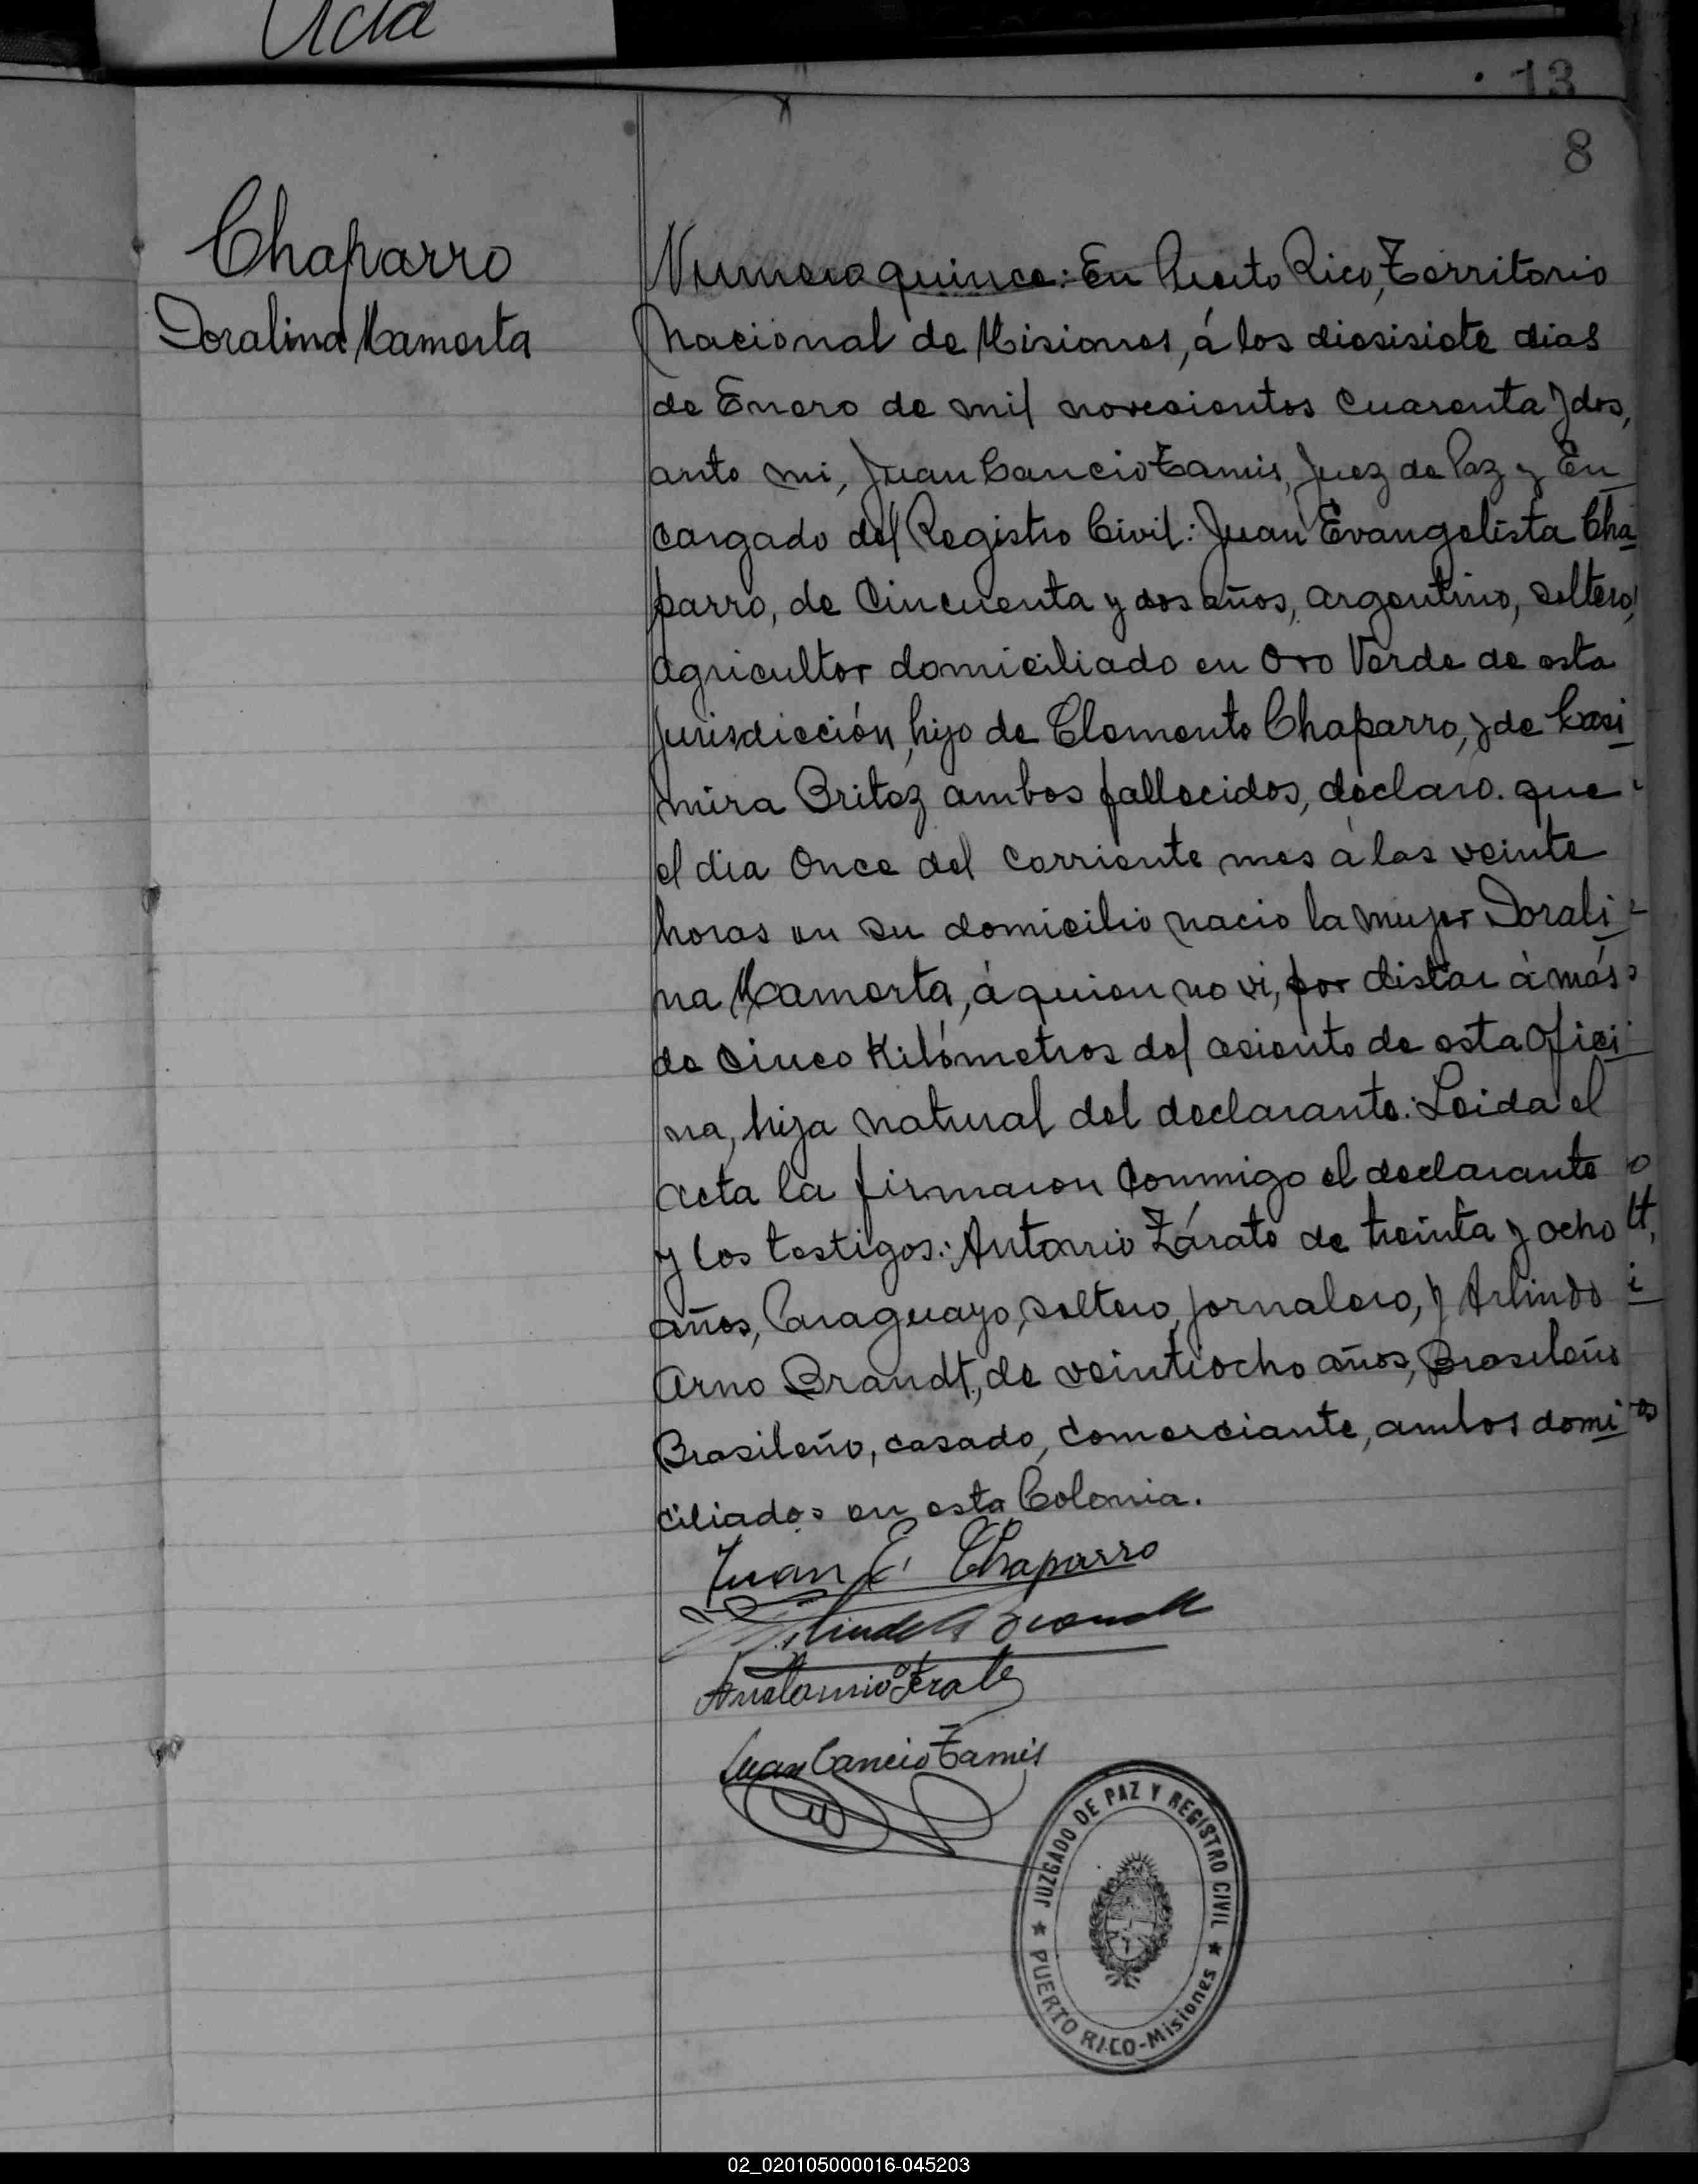 Acta
13
8
Chaparro
Doralina Mamerta
Numero quince: En Puerto Rico, Territorio
Nacional de Misiones, á los diesisiete dias
de Enero de mil novecientos cuarenta y dos,
ante mi, Juan Cancio Zamis, Juez de Paz y En
cargado del Registro Civil: Juan Evangelista Cha
parro, de Cincuenta y dos años, argentino, soltero,
agricultor domiciliado en Oro Verde de esta
jurisdicción, hijo de Clemente Chaparro, y de Casi
mira Britez ambos fallecidos, declaro. que
el dia Once del Corriente mes a las veinte
horas en su domicilio nacio la mujer Dorali
na Mamerta, á quien no vi, por distar á más
de Cinco Kilómetros del asiento de esta Ofici
na, hija natural del declarante: Leida el
acta la firmaron Conmigo el declarante
y los testigos: Antonio Zárate de treinta y ocho
años, Paraguayo, soltero, jornalero, y Arlindo
Arno Brandt, de veintiocho años, Brasileño
Brasileño, casado, comerciante, ambos domi
ciliados en esta Colonia.
Juan E. Chaparro
Juan Cancio Zamis
JUZGADO DE PAZ Y REGISTRO CIVIL
PUERTO RICO-Misiones
02_020105000016-045203